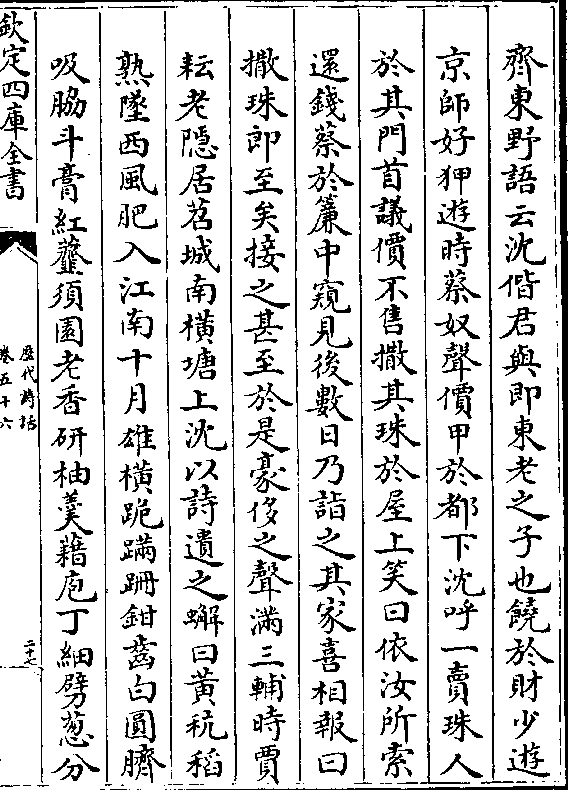 齊東野語云沈偕君與即東老之子也饒於財少遊
京師好狎遊時蔡奴聲價甲於都下沈呼一賣珠人
於其門首議價不售撒其珠於屋上笑曰依汝所索
還錢蔡於簾中窺見後數日乃詣之其家喜相報曰
撒珠郎至矣接之甚至於是豪侈之聲滿三輔時賈
耘老隱居苕城南橫塘上沈以詩遺之蠏曰黃秔稻
熟墜西風肥入江南十月雄橫跪蹣跚鉗齒白圓臍
吸脇斗膏紅虀須園老香研柚羹藉庖丁細劈葱分
欽定四庫全書
歷代詩話
卷五十六
二十七